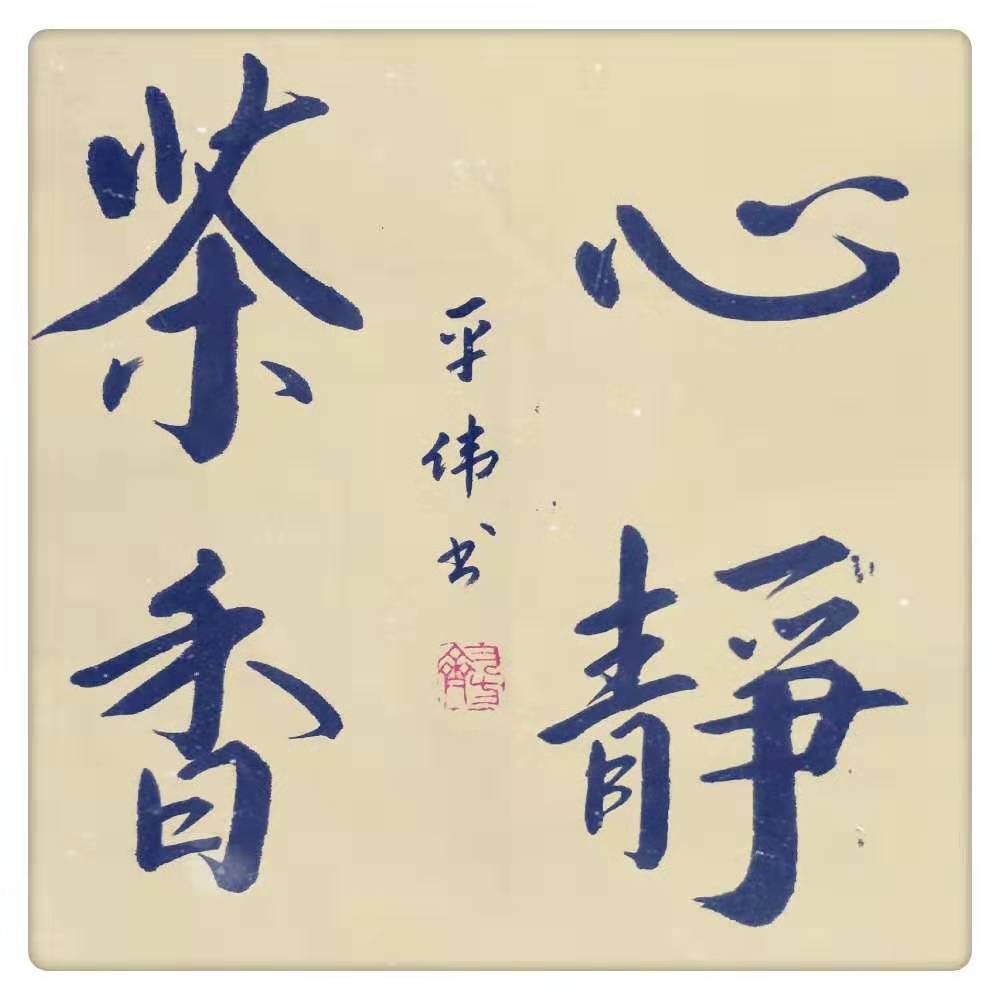 心靜
茶香
平伟书